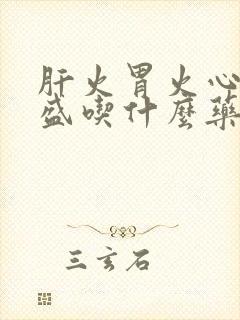 肝火胃火心
盛喫什麼藥
三玄石